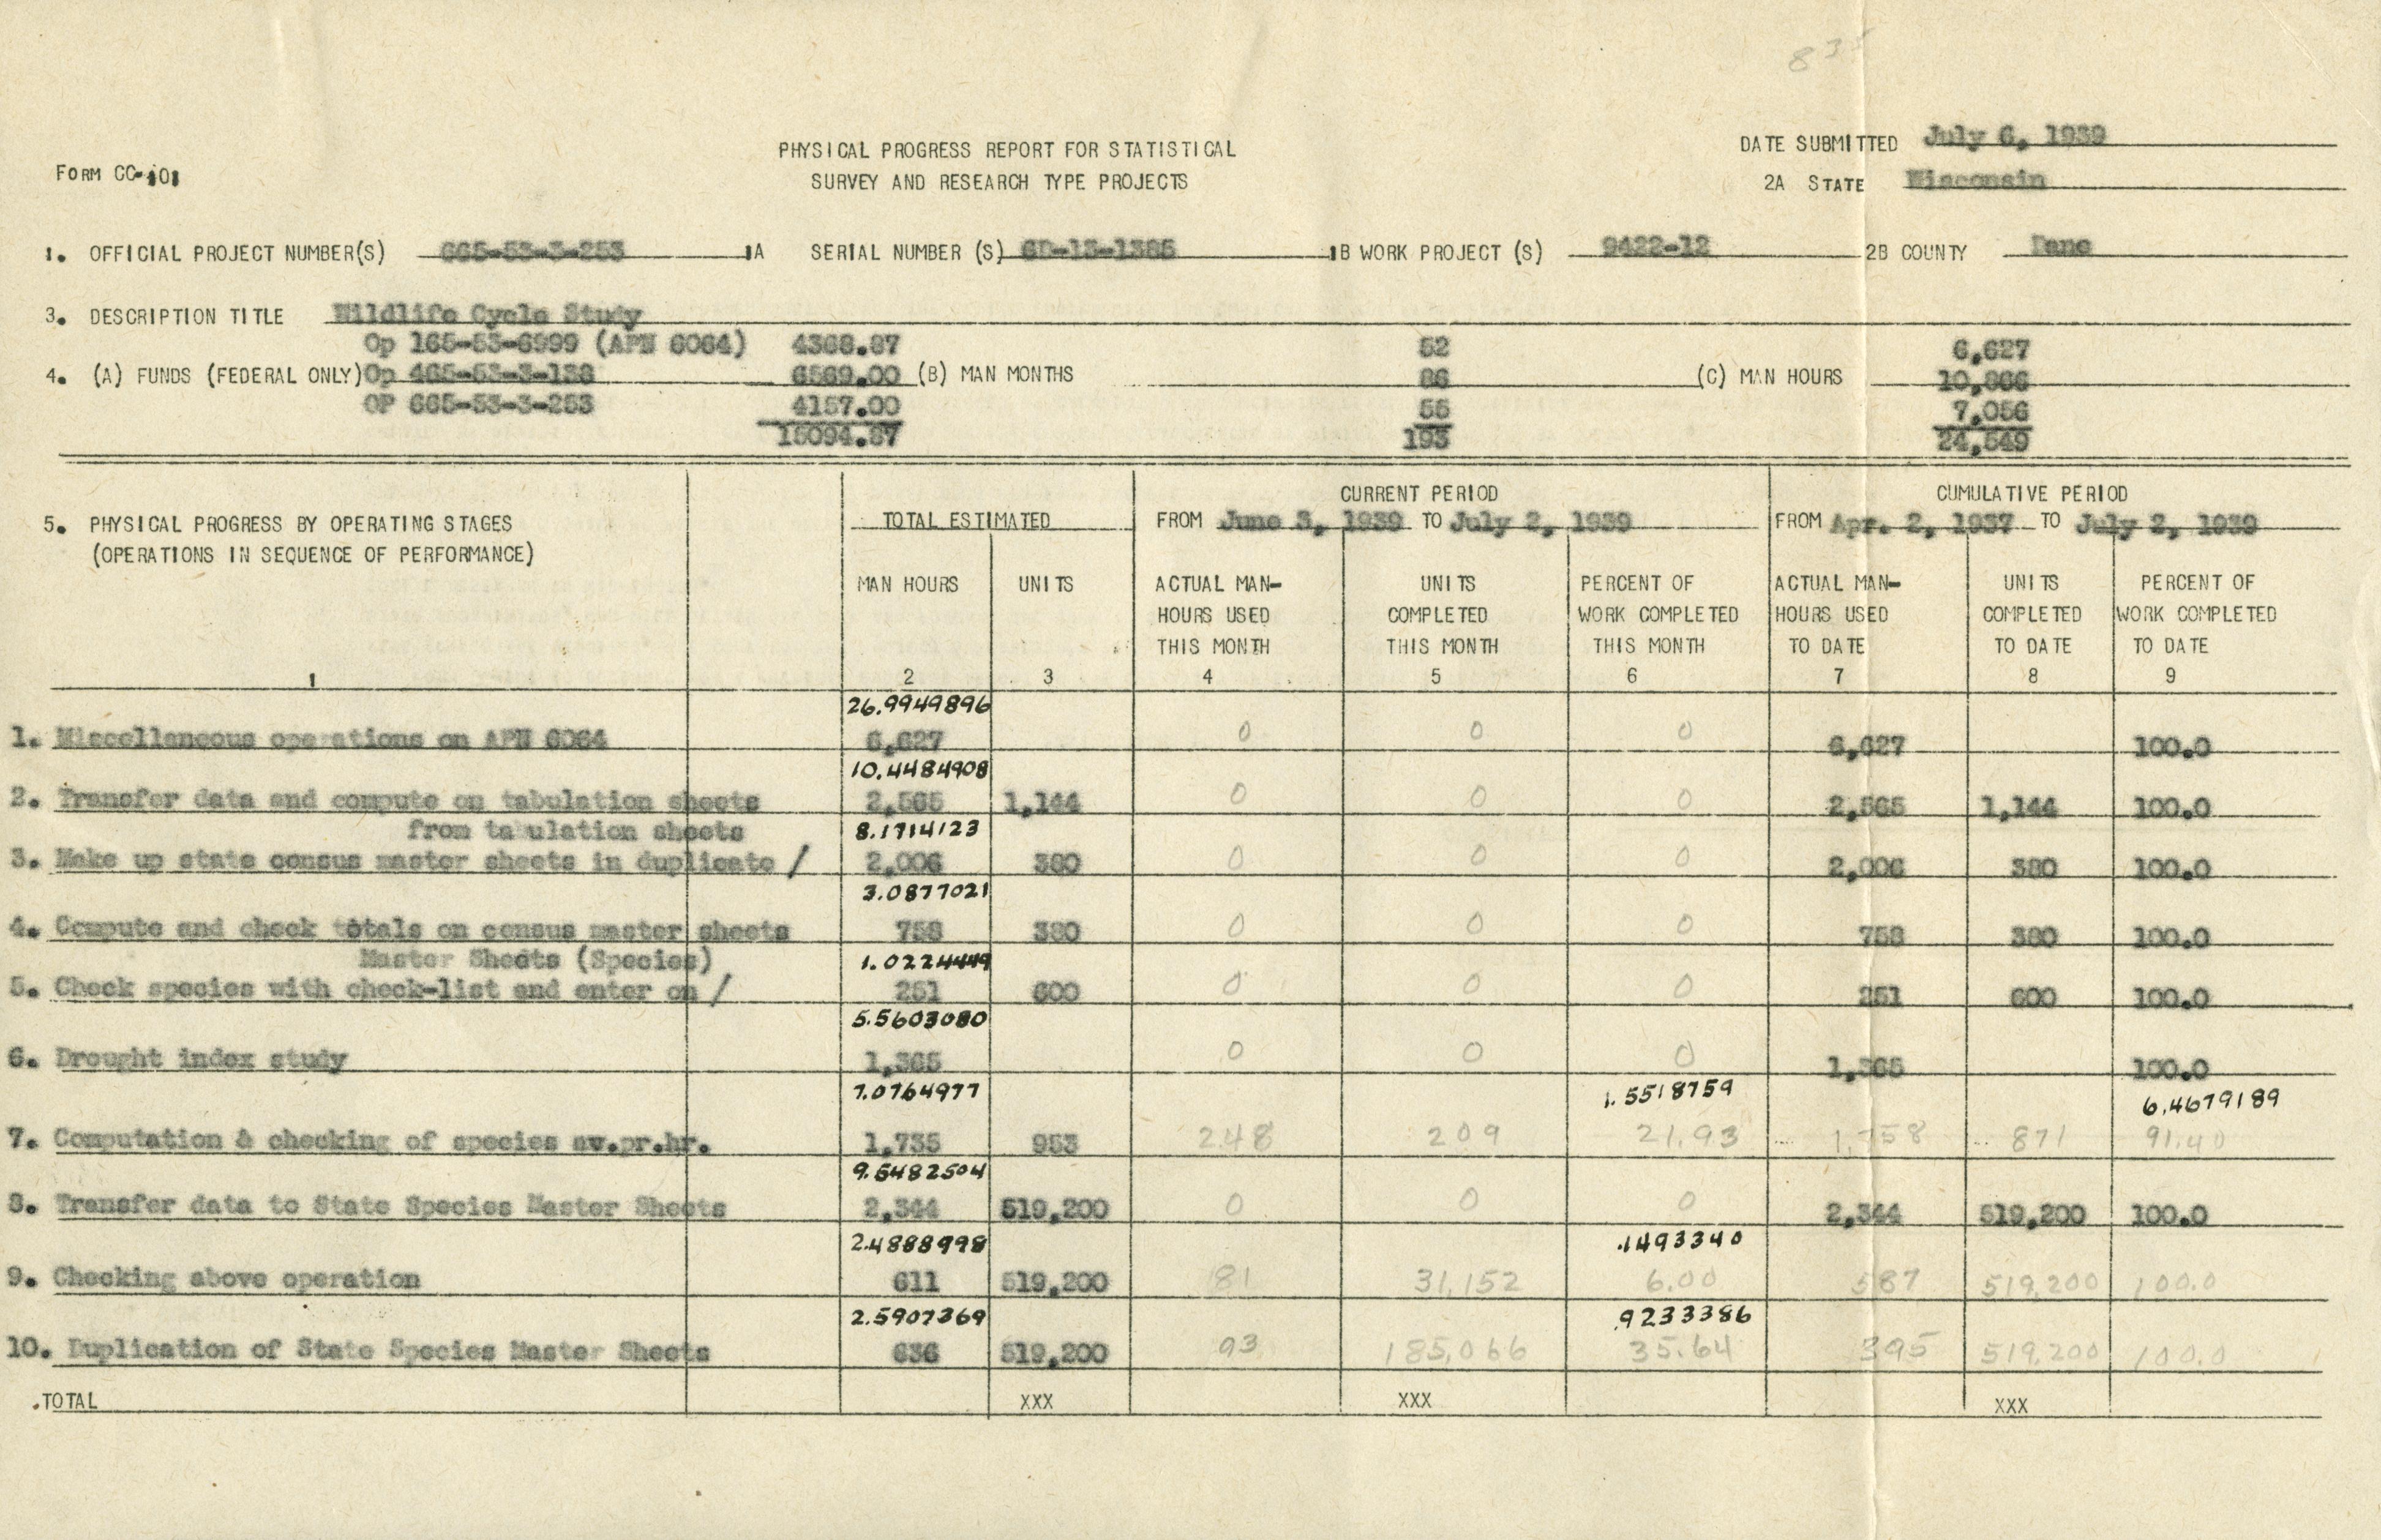 835
DATE SUBMITTED July 6, 1939
PHYSICAL PROGRESS REPORT FOR STATISTICAL
FORM CC-101
SURVEY AND RESEARCH TYPE PROJECTS
2A STATE Wisconsin
1. OFFICIAL PROJECT NUMBER(S) 665-53-3-253 1A SERIAL NUMBER (S) GD-13-1385 1B WORK PROJECT (S) 9422-12 2B COUNTY Dane
3. DESCRIPTION TITLE Wildlife Cycle Study
Op 165-53-6999 (APN 6064) 4368.87 52 6,627
4. (A) FUNDS (FEDERAL ONLY) Op 465-53-3-138 6569.00 (B) MAN MONTHS 86 (C) MAN HOURS 10,866
OP 665-53-3-253 4157.00 55 7,056
15094.87 193 24,549
CURRENT PERIOD CUMULATIVE PERIOD
5. PHYSICAL PROGRESS BY OPERATING STAGES TOTAL ESTIMATED FROM June 3, 1939 TO July 2, 1939 FROM Apr. 2, 1937 TO July 2, 1939
(OPERATIONS IN SEQUENCE OF PERFORMANCE)
MAN HOURS UNITS ACTUAL MAN- UNITS PERCENT OF ACTUAL MAN- UNITS PERCENT OF
HOURS USED COMPLETED WORK COMPLETED HOURS USED COMPLETED WORK COMPLETED
THIS MONTH THIS MONTH THIS MONTH TO DATE TO DATE TO DATE
1 2 3 4 5 6 7 8 9
26.9949896
1. Miscellaneous operations on APN 6064 6,627 0 0 0 6,627 100.0
10.4484908
2. Transfer data and compute on tabulation sheets 2,565 1,144 0 0 0 2,565 1,144 100.0
from tabulation sheets 8.1714123
3. Make up state census master sheets in duplicate / 2,006 380 0 0 0 2,006 380 100.0
3.0877021
4. Compute and check totals on census master sheets 758 380 0 0 0 758 380 100.0
Master Sheets (Species) 1.0224449
5. Check species with check-list and enter on / 251 600 0 0 0 251 600 100.0
5.5603080
6. Drought index study 1,365 0 0 0 1,365 100.0
7.0764977 1.5518759 6.4679189
7. Computation & checking of species av.pr.hr. 1,735 953 248 209 21.93 1,758 871 91.40
9.5482504
8. Transfer data to State Species Master Sheets 2,344 519,200 0 0 0 2,344 519,200 100.0
2.4888998 .1493340
9. Checking above operation 611 519,200 81 31,152 6.00 587 519,200 100.0
2.5907369 .9233386
10. Duplication of State Species Master Sheets 636 519,200 93 185,066 35.64 395 519,200 100.0
.TOTAL XXX XXX XXX